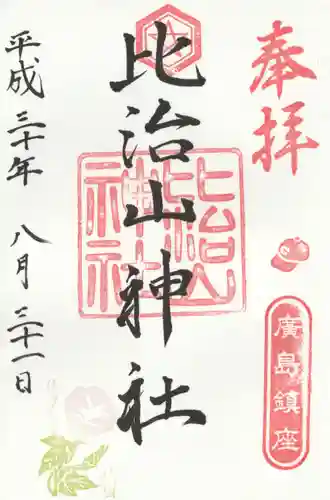 奉拝
廣島鎮座
比治山神社
比治山神社
平成三十年 八月三十一日